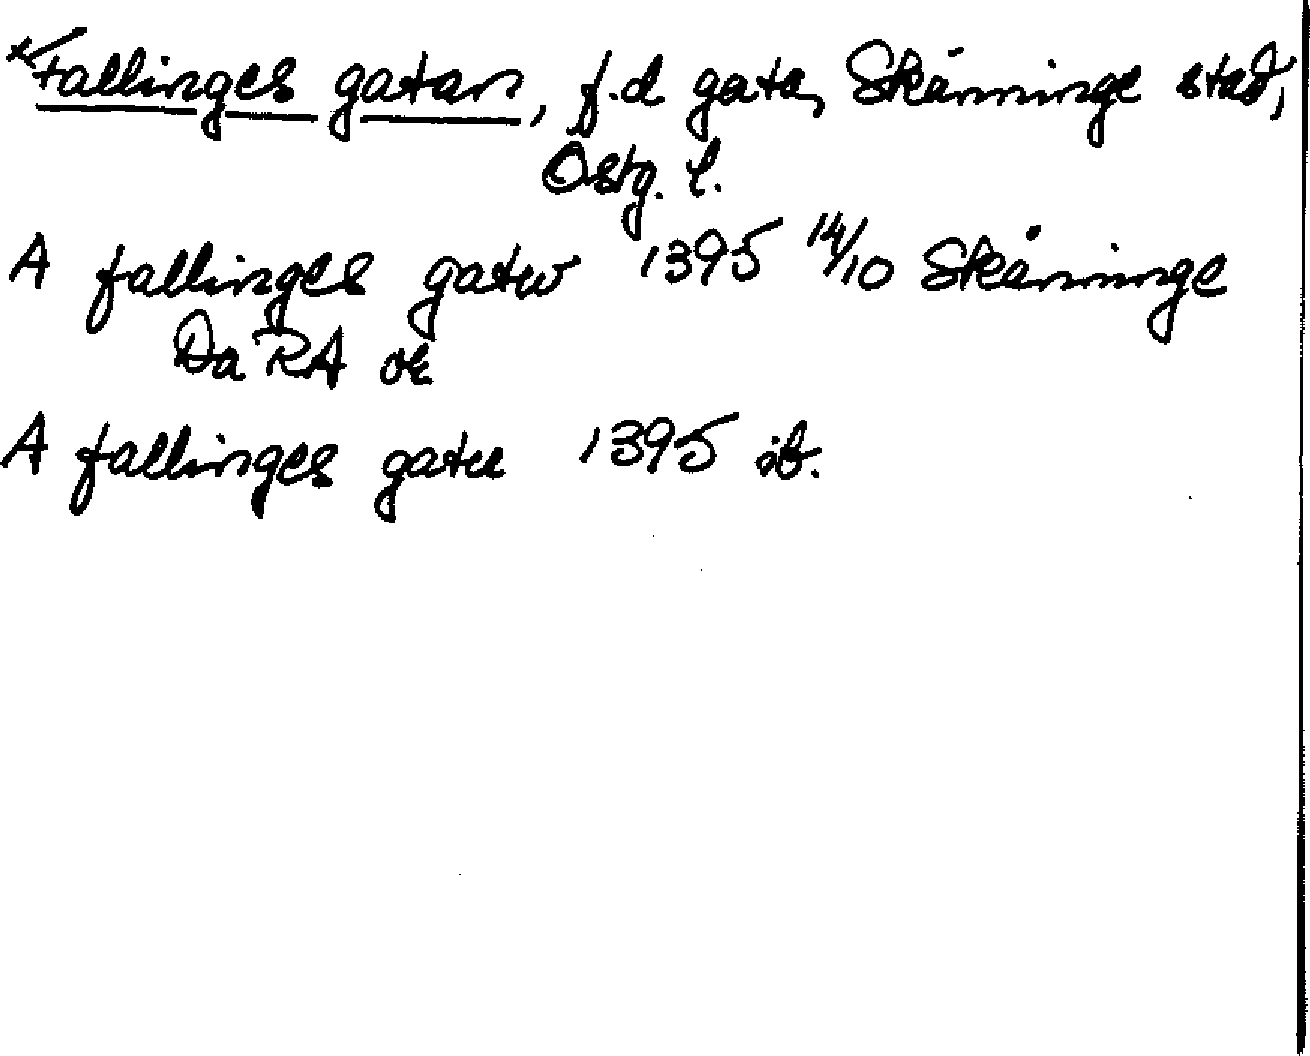 *Fallinges gatan, f.d gata, Skänninge stad,
Östg. l.
A fallinges gatw 1395 14/10 Skänninge
Da RA ok
A fallinges gatu 1395 ib.